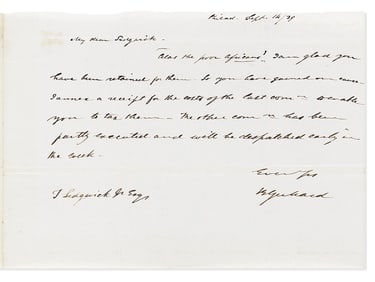 Philad. Sept. 14/39
My dear Sedgwick.
Alas the poor Africans! I am glad you
have been retained for them. So you have gained our cause.
I annex a receipt for the costs of the last com n to enable
you to tax them – The other com n has been
partly executed and will be despatched early in
the week.
Ever yrs
T Sedgwick Jr Esq